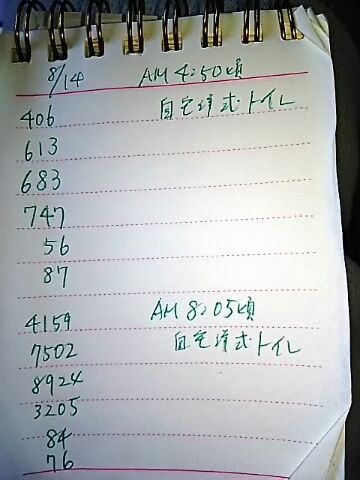 8/14 AM 4:50頃
406 自宅洋式トイレ
613
683
747
56
87
4159 AM 8:05頃
7502 自宅洋式トイレ
8924
3205
84
76